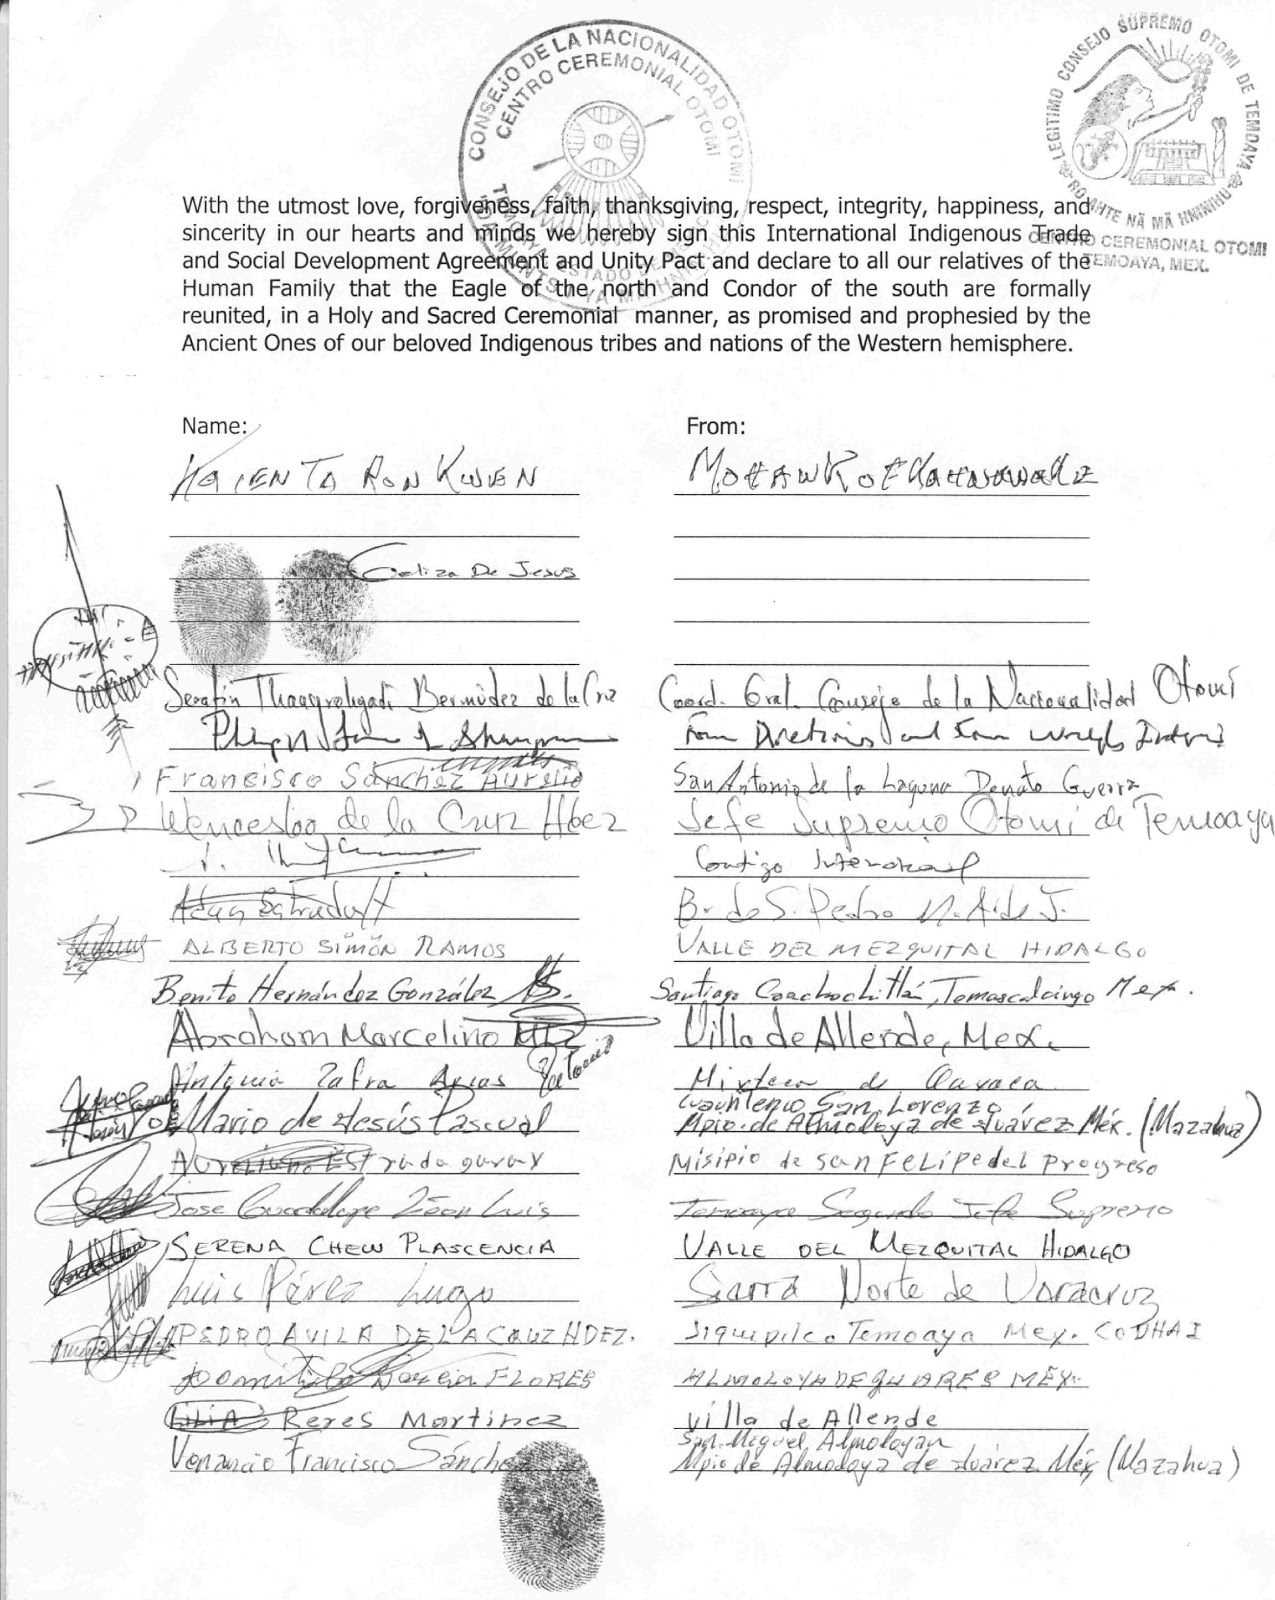 CONSEJO DE LA NACIONALIDAD OTOMI
CENTRO CEREMONIAL OTOMI
TEMOAYA ESTADO DE
LEGITIMO CONSEJO SUPREMO OTOMI DE TEMOAYA
NÃ MÃ HNINIHU
CENTRO CEREMONIAL OTOMI
TEMOAYA, MEX.
With the utmost love, forgiveness, faith, thanksgiving, respect, integrity, happiness, and
sincerity in our hearts and minds we hereby sign this International Indigenous Trade
and Social Development Agreement and Unity Pact and declare to all our relatives of the
Human Family that the Eagle of the north and Condor of the south are formally
reunited, in a Holy and Sacred Ceremonial manner, as promised and prophesied by the
Ancient Ones of our beloved Indigenous tribes and nations of the Western hemisphere.
Name: From:
KAIENTA RONKWEN MOHAWK OF KAHNAWAKE
De Jesus
Serafín Bermúdez de la Cruz Coord. Gral. Consejo de la Nacionalidad Otomí
Four Directions and Four
Francisco Sánchez Aurelio San Antonio de la Laguna Donato Guerra
Wenceslao de la Cruz Hdez Jefe Supremo Otomí de Temoaya
Contigo
Adan Estrada B. de S. Pedro
ALBERTO SIMÓN RAMOS VALLE DEL MEZQUITAL HIDALGO
Benito Hernández González Santiago Coachochitlán, Temascalcingo Mex.
Abraham Marcelino Villa de Allende, Mex.
Antonia Zafra Arias Mixteca de Oaxaca
Cuauhtenco San Lorenzo,
Mario de Jesús Pascual Mpio. de Almoloya de Juárez Méx. (Mazahua)
Aureliano Estrada garay Misipio de san FELIPE del Progreso
Jose Guadalupe León Luis Temoaya Segundo Jefe Supremo
SERENA CHEW PLASCENCIA VALLE DEL MEZQUITAL HIDALGO
Luis Pérez Lugo Sierra Norte de Veracruz
PEDRO AVILA DE LA CRUZ HDEZ. Jiquipilco Temoaya Mex. CODHAI
FLORES ALMOLOYA DE MÉX.
LILIA Reres Martinez Villa de Allende
San Miguel Almoloyan
Venancio Francisco Sánchez Mpio de Almoloya de Juárez Méx (Mazahua)